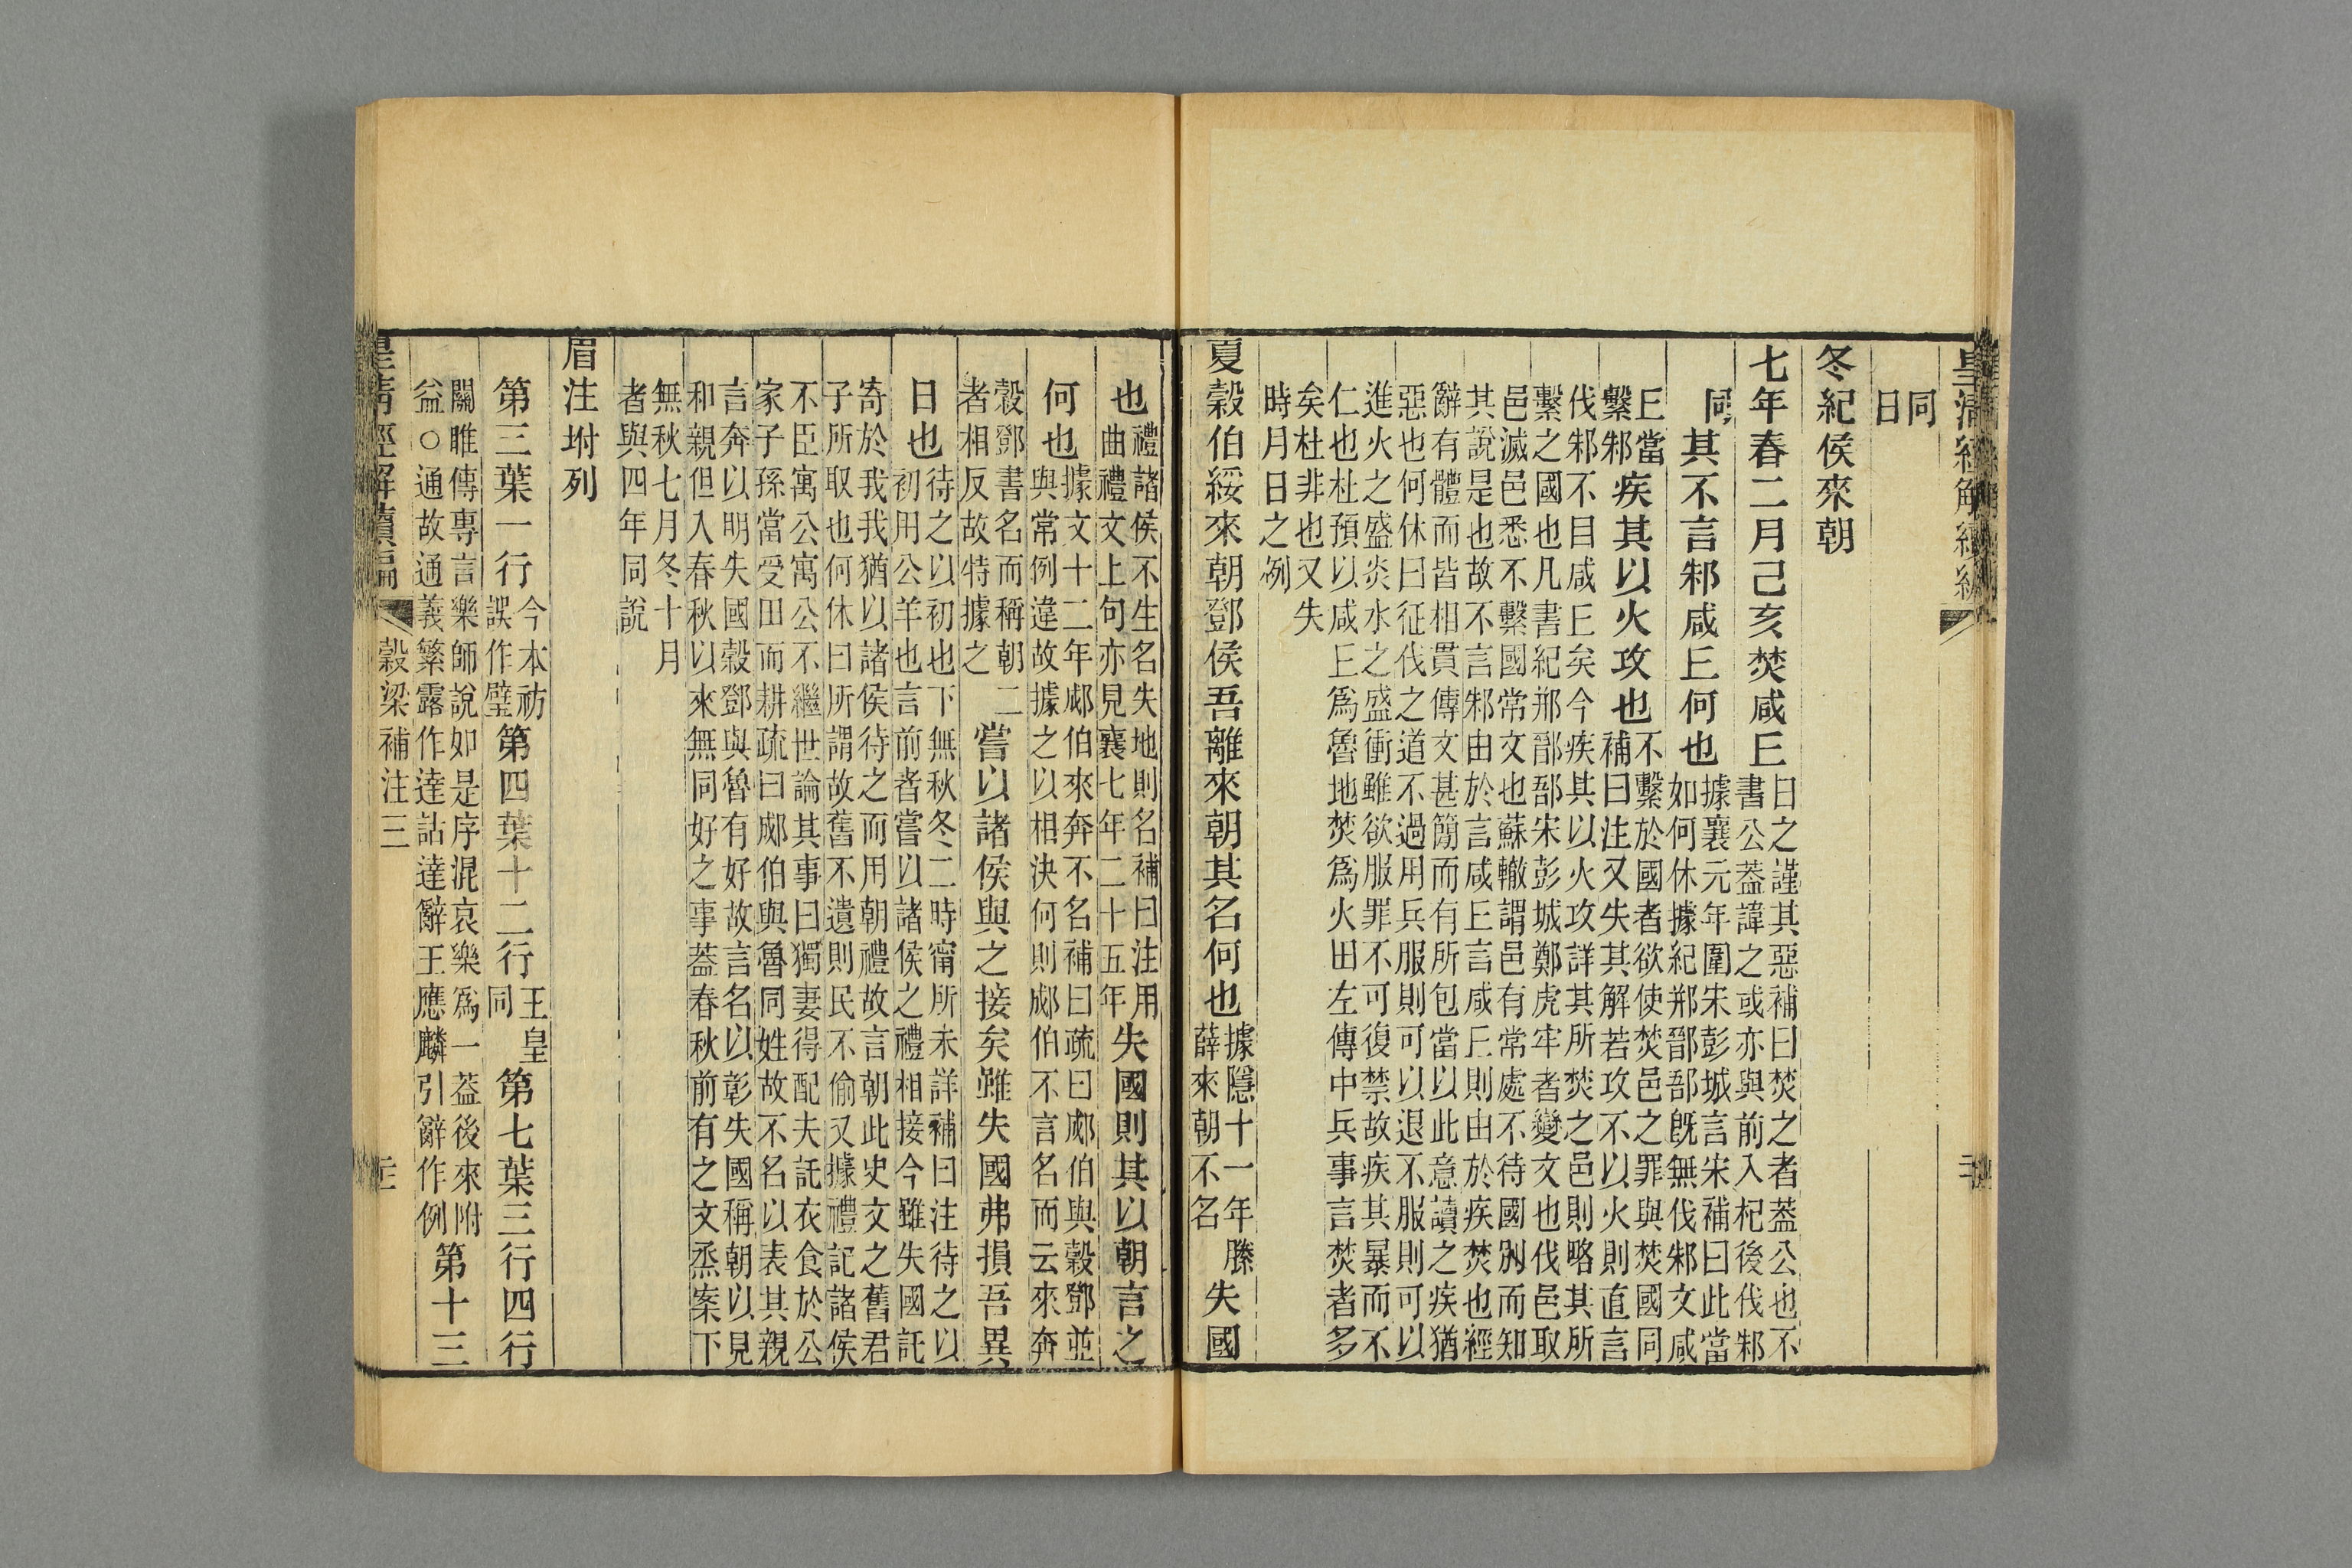 皇清經解續編
同
日
冬紀侯來朝
七年春二月己亥焚咸丘
日之謹其惡補曰焚之者葢公也不
書公葢諱之或亦與前入杞後伐邾
同
其不言邾咸丘何也
據襄元年圍宋彭城言宋補曰此當
如何休據紀郱鄑郚旣無伐邾文咸
丘當
繫邾
疾其以火攻也
不繫於國者欲使焚邑之罪與焚國同
補曰注又失其解若攻不以火則直言
伐邾不目咸丘矣今疾其以火攻詳其所焚之邑則略其所
繫之國也凡書紀郱鄑郚宋彭城鄭虎牢者變文也伐邑取
邑滅邑悉不繫國常文也蘇轍謂邑有常處不待國別而知
其說是也故不言邾由於言咸丘言咸丘則由於疾焚也經
辭有體而皆相貫傳文甚簡而有所包當以此意讀之疾猶
惡也何休曰征伐之道不過用兵服則可以退不服則可以
進火之盛炎水之盛衝雖欲服罪不可復禁故疾其暴而不
仁也杜預以咸丘爲魯地焚爲火田左傳中兵事言焚者多
矣杜非也又失
時月日之例
夏穀伯綏來朝鄧侯吾離來朝其名何也
據隱十一年滕
薛來朝不名
失國
也
禮諸侯不生名失地則名補曰注用
曲禮文上句亦見襄七年二十五年
失國則其以朝言之
何也
據文十二年郕伯來奔不名補曰疏曰郕伯與穀鄧並
與常例違故據之以相決何則郕伯不言名而云來奔
穀鄧書名而稱朝二
者相反故特據之
嘗以諸侯與之接矣雖失國弗損吾異
日也
待之以初也下無秋冬二時甯所未詳補曰注待之以
初用公羊也言前者嘗以諸侯之禮相接今雖失國託
寄於我我猶以諸侯待之而用朝禮故言朝此史文之舊君
子所取也何休曰所謂故舊不遺則民不偷又據禮記諸侯
不臣寓公寓公不繼世論其事曰獨妻得配夫託衣食於公
家子孫當受田而耕疏曰郕伯與魯同姓故不名以表其親
言奔以明失國穀鄧與魯有好故言名以彰失國稱朝以見
和親但入春秋以來無同好之事葢春秋前有之文烝案下
無秋七月冬十月
者與四年同說
眉注坿列
第三葉一行
今本祊
誤作璧
第四葉十二行
王皇
同
第七葉三行四行
關雎傳專言樂師說如是序混哀樂爲一葢後來附
益○通故通義繁露作達詁達辭王應麟引辭作例
第十三
皇清經解續編
穀梁補注三